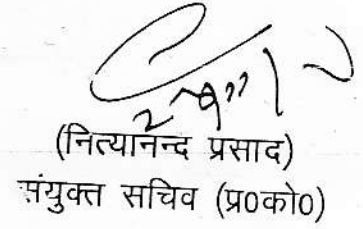 (नित्यानन्द प्रसाद)
संयुक्त सचिव (प्र0को0)